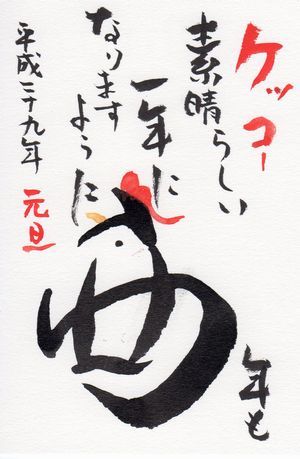 酉年も
ケッコー
素晴らしい
一年に
なります
ように
平成二十九年 元旦